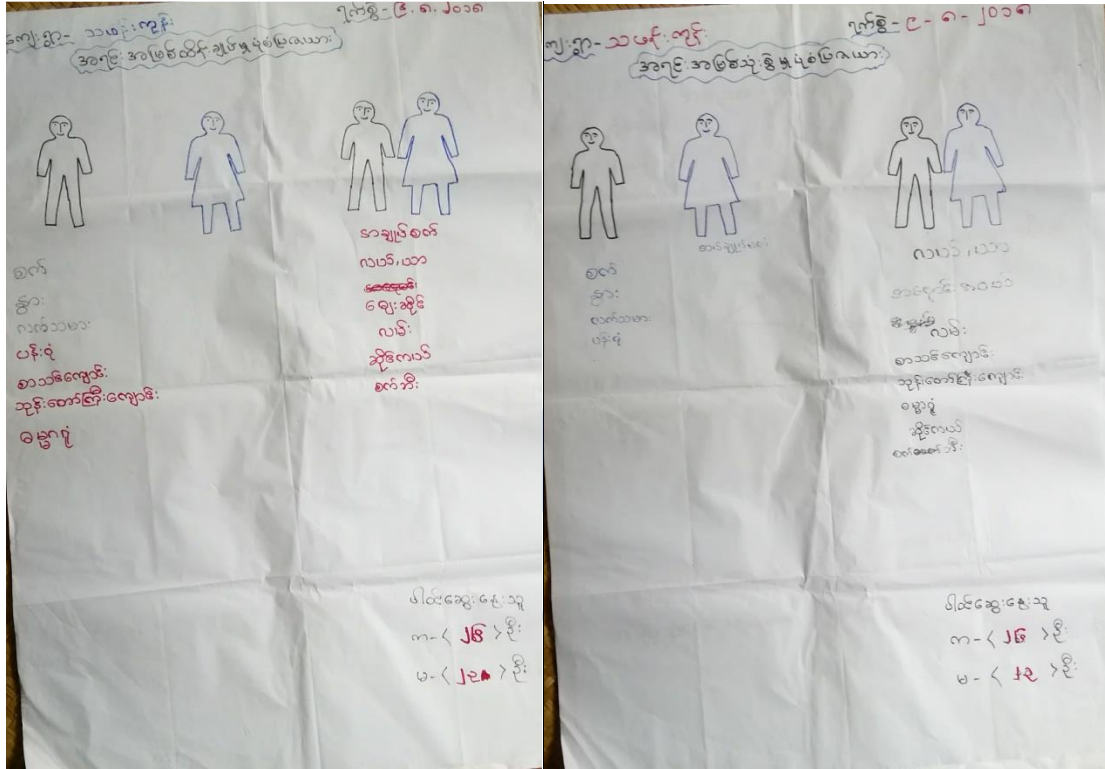 ကျေးရွာ- သဖန်းကုန်း
ရက်စွဲ- ၉.၈.၂၀၁၈
အရင်းအမြစ်ထိန်းချုပ်မှုပုံစံပြဇယား
စက်
နွား
လက်သမား
ပန်းရံ
စာသင်ကျောင်း
ဘုန်းတော်ကြီးကျောင်း
ဓမ္မာရုံ
အချုပ်စက်
လယ်၊ယာ
ဈေးဆိုင်
လမ်း
ဆိုင်ကယ်
စက်ဘီး
ပါဝင်ဆွေးနွေးသူ
က-< ၂၆ >ဦး
မ-< ၂၃ >ဦး
ကျေးရွာ- သဖန်းကုန်း
ရက်စွဲ- ၉-၈-၂၀၁၈
အရင်းအမြစ်သုံးစွဲမှုပုံစံပြဇယား
စက်
နွား
လက်သမား
ပန်းရံ
စက်ချုပ်
လယ်၊ယာ
လမ်း
စာသင်ကျောင်း
ဘုန်းတော်ကြီးကျောင်း
ဓမ္မာရုံ
ဆိုင်ကယ်
စက်ဘီး
ပါဝင်ဆွေးနွေးသူ
က-< ၂၆ >ဦး
မ-< ၂၃ >ဦး